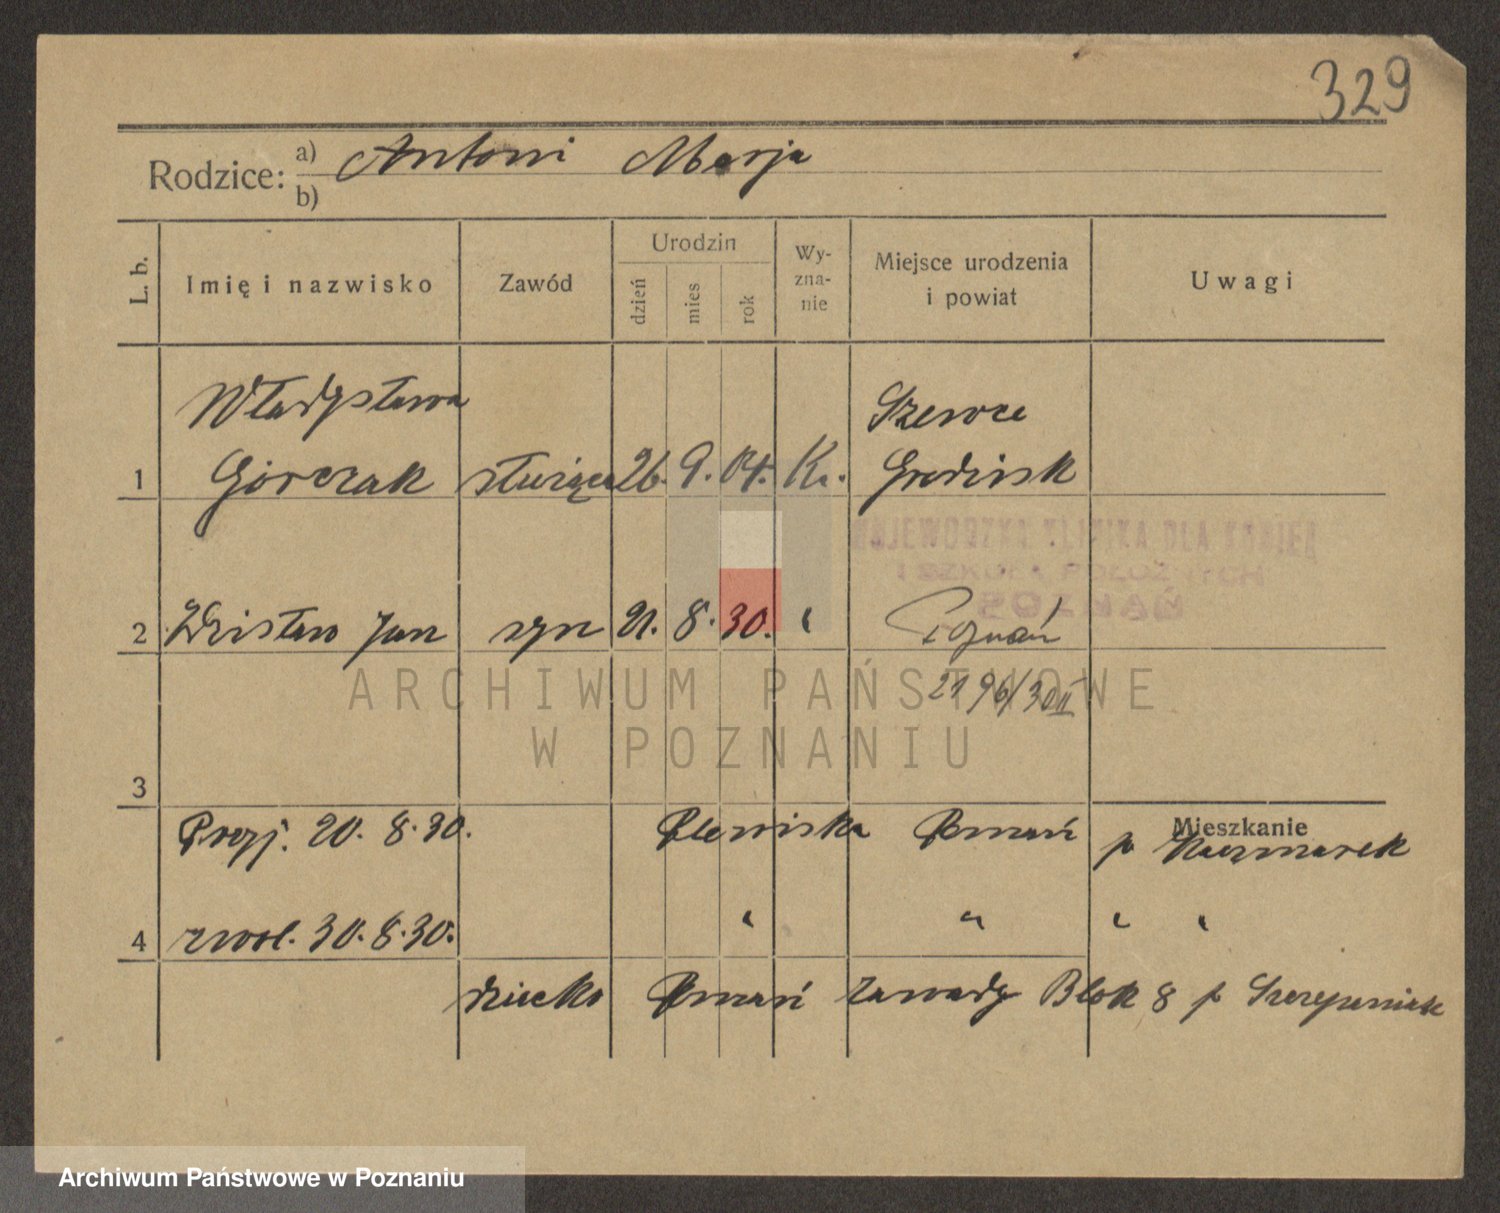 329
Rodzice: a) Antoni Marja
b)
L. b.
Imię i nazwisko
Zawód
Urodzin
dzień
mies
rok
Wy-
zna-
nie
Miejsce urodzenia
i powiat
Uwagi
Władysława
Szewce
1 Górczak służąca 26. 9. 04. Ka. Grodzisk
WOJEWÓDZKA KLINIKA DLA KOBIET
I SZKOŁA POŁOŻNYCH
POZNAŃ
2 Zdzisław Jan syn 21. 8. 30. " Poznań
2196/30 II
ARCHIWUM PAŃSTWOWE
W POZNANIU
3
Mieszkanie
Przyj. 20. 8. 30. Plewiska Poznań p Kaczmarek
4 zwol. 30. 8. 30. " " " "
dziecko Poznań Zawady Blok 8 p Szczepaniak
Archiwum Państwowe w Poznaniu